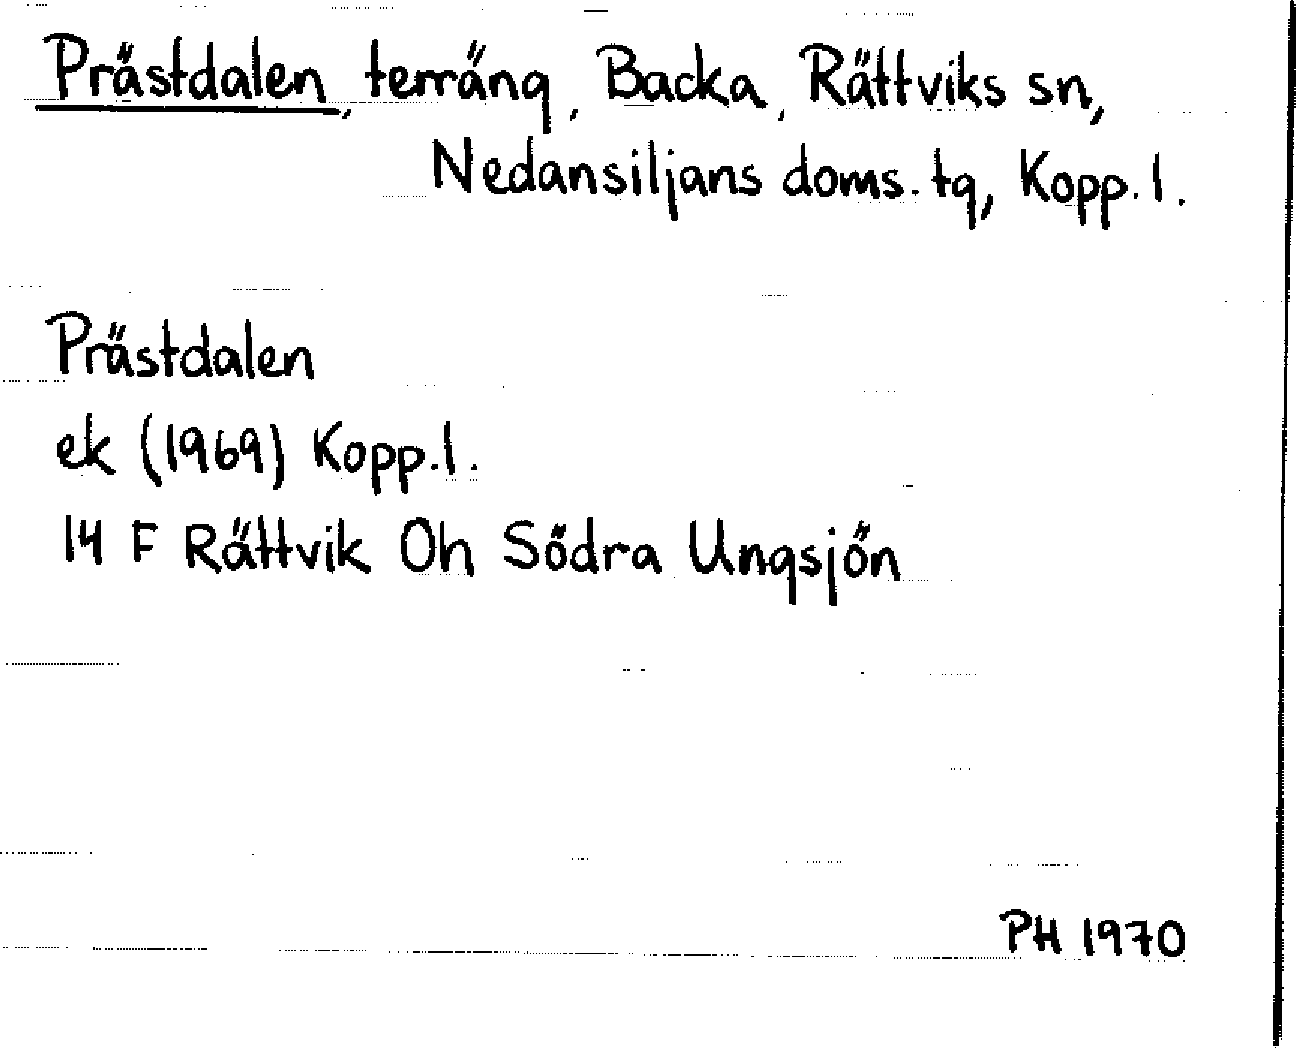 Prästdalen, terräng, Backa, Rättviks sn,
Nedansiljans doms. tg, Kopp. l.
Prästdalen
ek (1969) Kopp. l.
14 F Rättvik Oh Södra Ungsjön
PH 1970